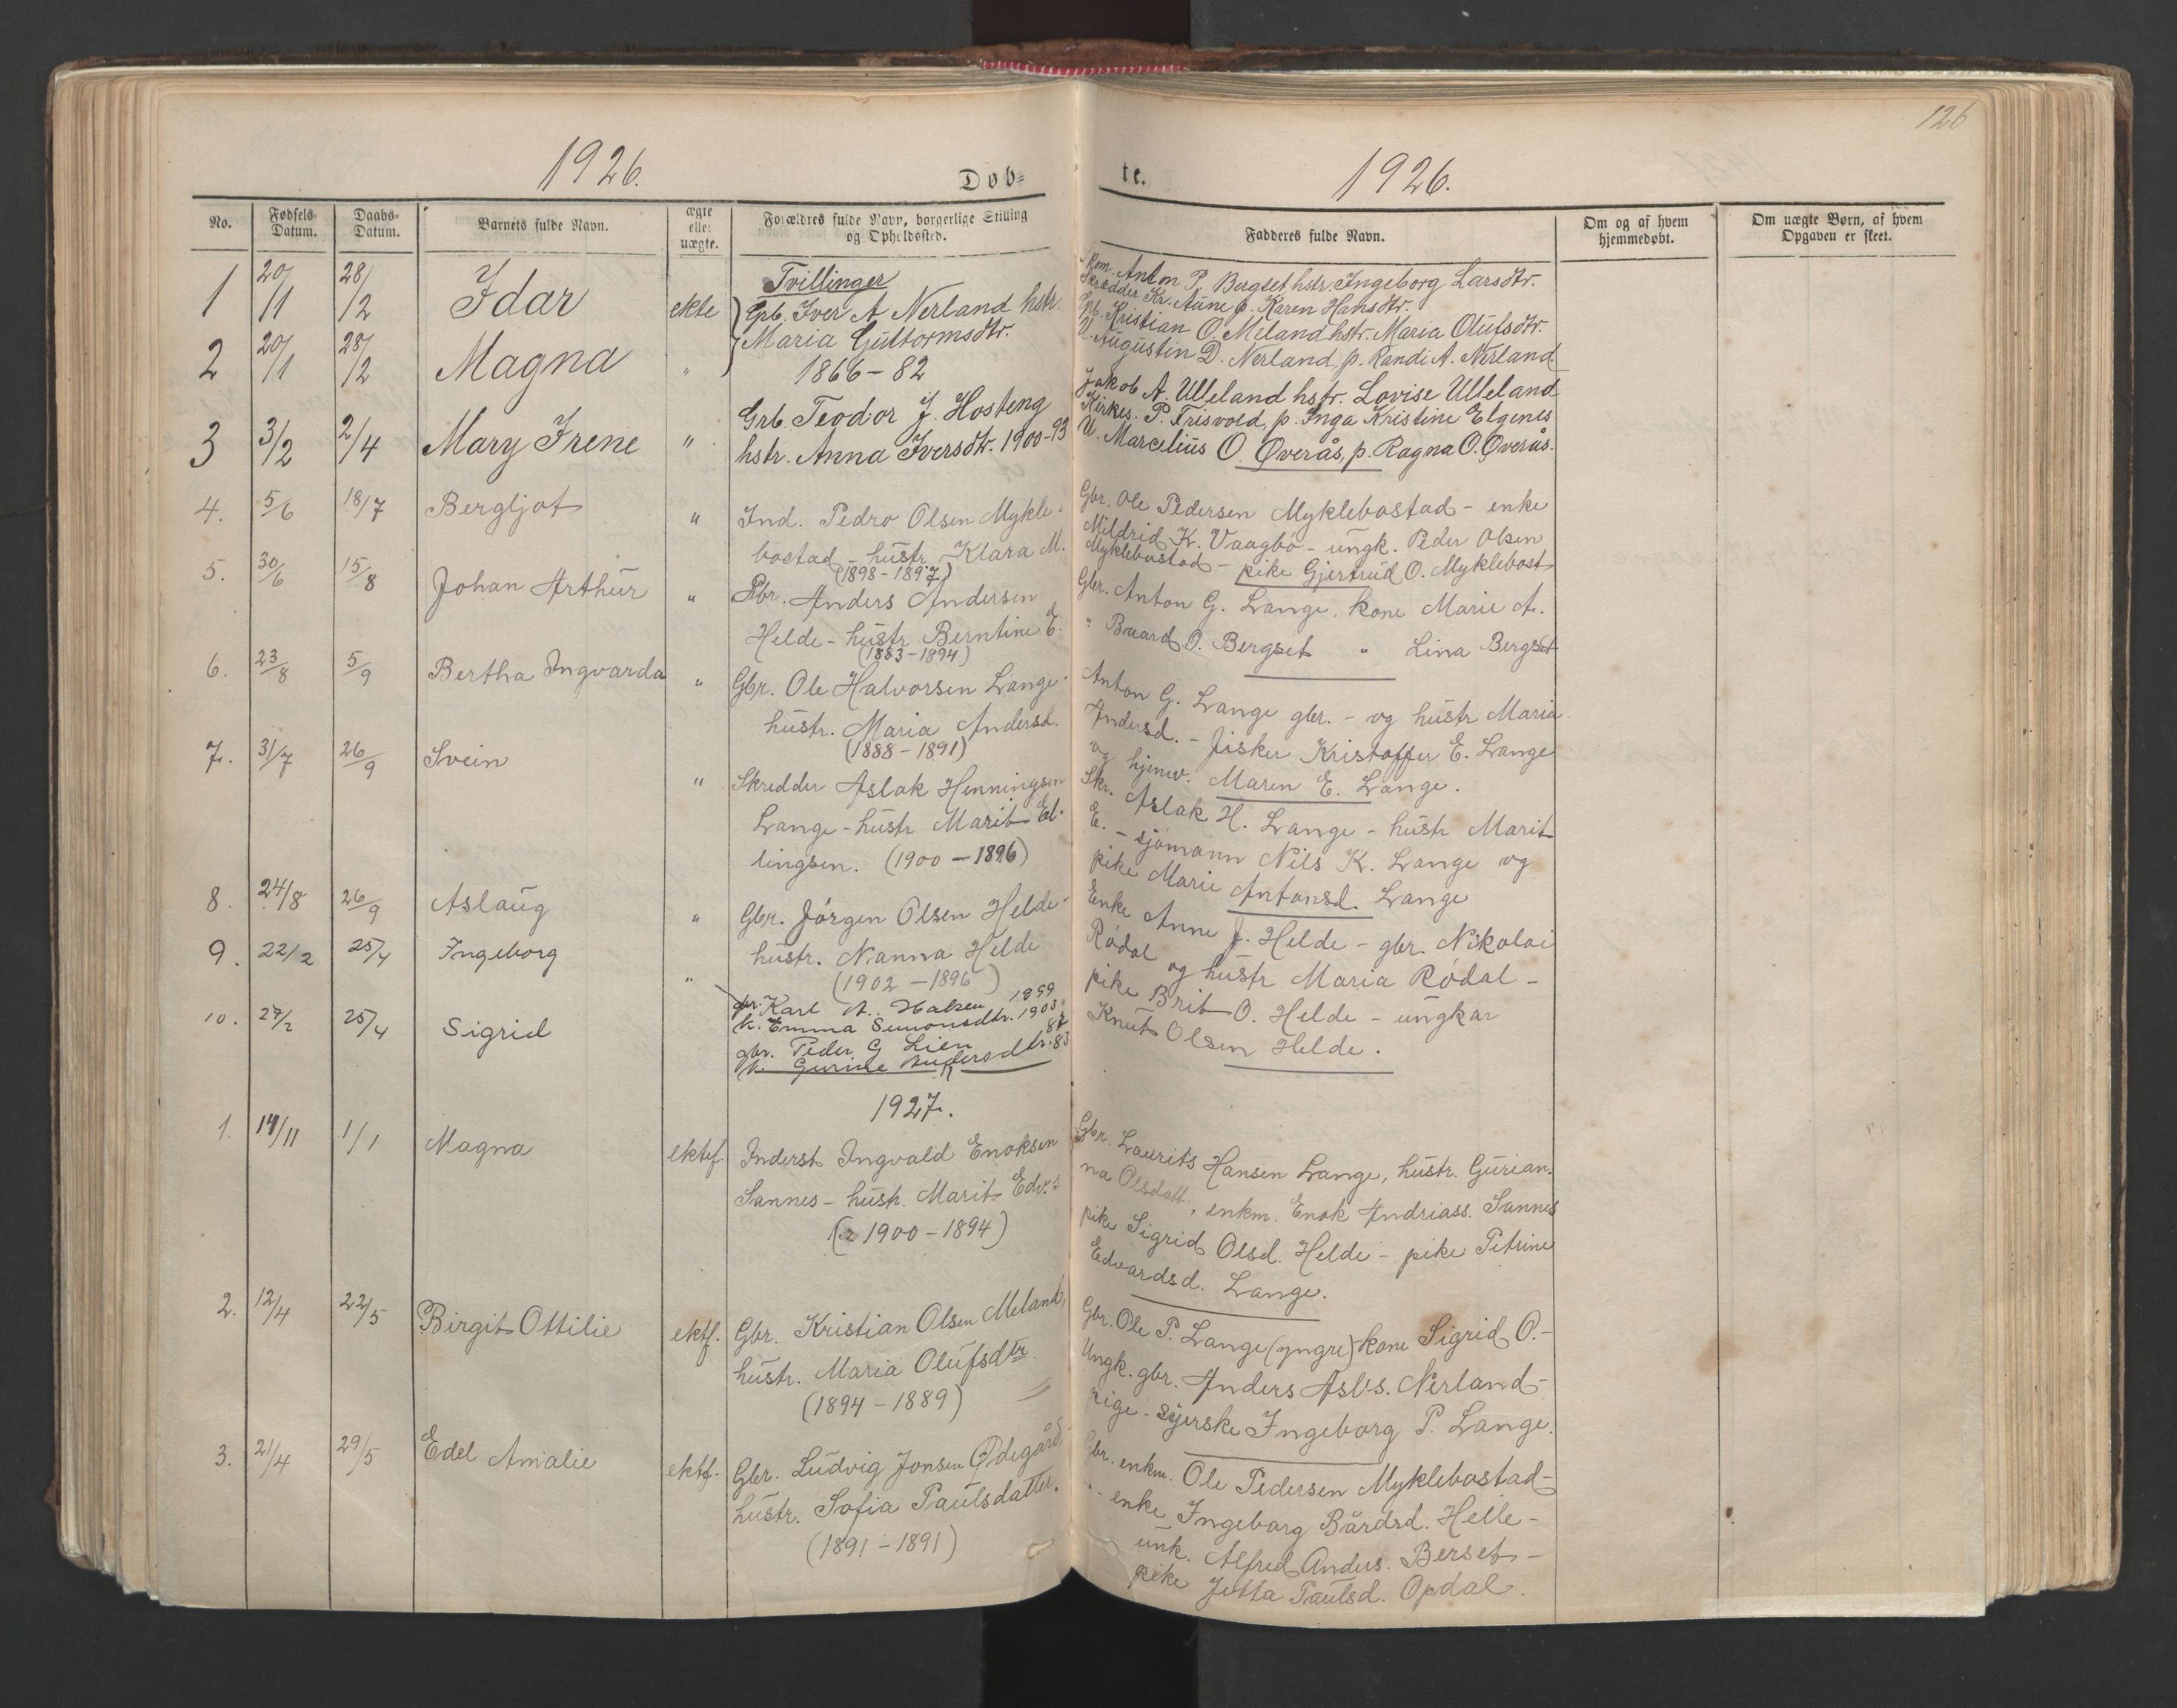 126
1926.
Døb=
te.
1926.
No.
Fødsels-
Datum.
Daabs-
Datum.
Barnets fulde Navn.
ægte
eller
uægte.
Forældres fulde Navn, borgerlige Stilling
og Opholdssted.
Fadderes fulde Navn.
Om og af hvem
hjemmedøbt.
Om uægte Børn, af hvem
Opgaven er skeet.
1 20/11 28/2 Idar ekte
Tvillinger
Gpb. Iver A Nerland hstr.
Maria Guttormsdtr.
1866-82
2 20/11 28/2 Magna "
Anton P. Bergset, hstr. Ingeborg Larsdtr.
Skredder Kr. Aune p. Karen Hansdtr.
Kristian O. Meland hstr. Maria Olufsdtr.
U. Augustin D. Nerland, p. Randi A. Nerland
3 3/2 2/4 Mary Irene "
Grb. Teodor J. Hosteng
hstr. Anna Iversdtr. 1900-93
Jakob A. Ulleland hstr. Lovise Ulleland
Kirkes. P. Frisvold, p. Inga Kristine Elgenes
U. Marcelius O. Øverås, p. Ragna O. Øverås.
4. 5/6 18/7 Bergljot "
Ind. Pedro Olsen Mykle-
bostad - hustr. Klara M.
(1898-1897)
Gbr. Ole Pedersen Myklebostad - enke
Mildrid K. Vaagbø - ungk. Peder Olsen
Myklebostad - pike Gjertrud O. Myklebost
5. 30/6 15/8 Johan Arthur "
Gbr. Anders Andersen
Helde - hustr Berntine E.
(1883-1894)
Gbr. Anton G. Lange, kone Marie A.
" Baard O. Bergset " Lina Bergset
6. 23/8 5/9 Bertha Ingvarda "
Gbr. Ole Halvorsen Lange-
hustr. Maria Andersd.
(1888-1891)
Anton G. Lange gbr. - og hustr Maria
Andersd. - fisker Kristoffer E. Lange
og hjemv. Maren E. Lange.
7. 31/7 26/9 Svein "
Skredder Aslak Henningsen
Lange - hustr Marit El-
lingsen. (1900-1896)
Skr. Aslak H. Lange - hustr Marit
E. - sjømann Nils K. Lange og
pike Marie Antonsd. Lange
8. 24/8 26/9 Aslaug "
Gbr. Jörgen Olsen Helde-
hustr. Nanna Helde
(1902-1896)
Enke Anne J. Helde - gbr. Nikolai
Rödal og hustr Maria Rödal -
pike Brit O. Helde - ungkar
Knut Olsen Helde.
9. 22/2 25/4 Ingeborg "
gbr. Karl A. Halsen 1899
h. Emma Simonsdtr. 1903
10. 27/2 25/4 Sigrid
gbr. Peder G Lien 87
h. Gurine Andersdtr. 83
1927.
1. 14/11 1/1 Magna ektef.
Inderst Ingvald Enoksen
Sannes - hustr. Marit Edv.s
(1900-1894)
Gbr. Laurits Hansen Lange, hustr. Gurian-
na Olsdatt., enkm. Enok Andriass. Sannes
pike Sigrid Olsd. Helde - pike Petrine
Edvardsd. Lange.
2. 12/4 22/5 Birgit Ottilie ektf.
Gbr. Kristian Olsen Meland,
hustr. Maria Olufsdtr.
(1894-1889)
Gbr. Ole P. Lange (yngre) kone Sigrid O.-
Ungk. gbr. Anders Asl's. Nerland-
pige - syerske Ingeborg P. Lange.
3. 21/4 29/5 Edel Amalie ektf.
Gbr. Ludvig Jonsen Ødegård,
hustr. Sofia Paulsdatter.
(1891-1891)
Gbr. enkm. Ole Pedersen Myklebostad-
- enke Ingeborg Bårdsd. Helle-
unk. Alfred Anders. Berset-
pike Jetta Paulsd. Opdal.